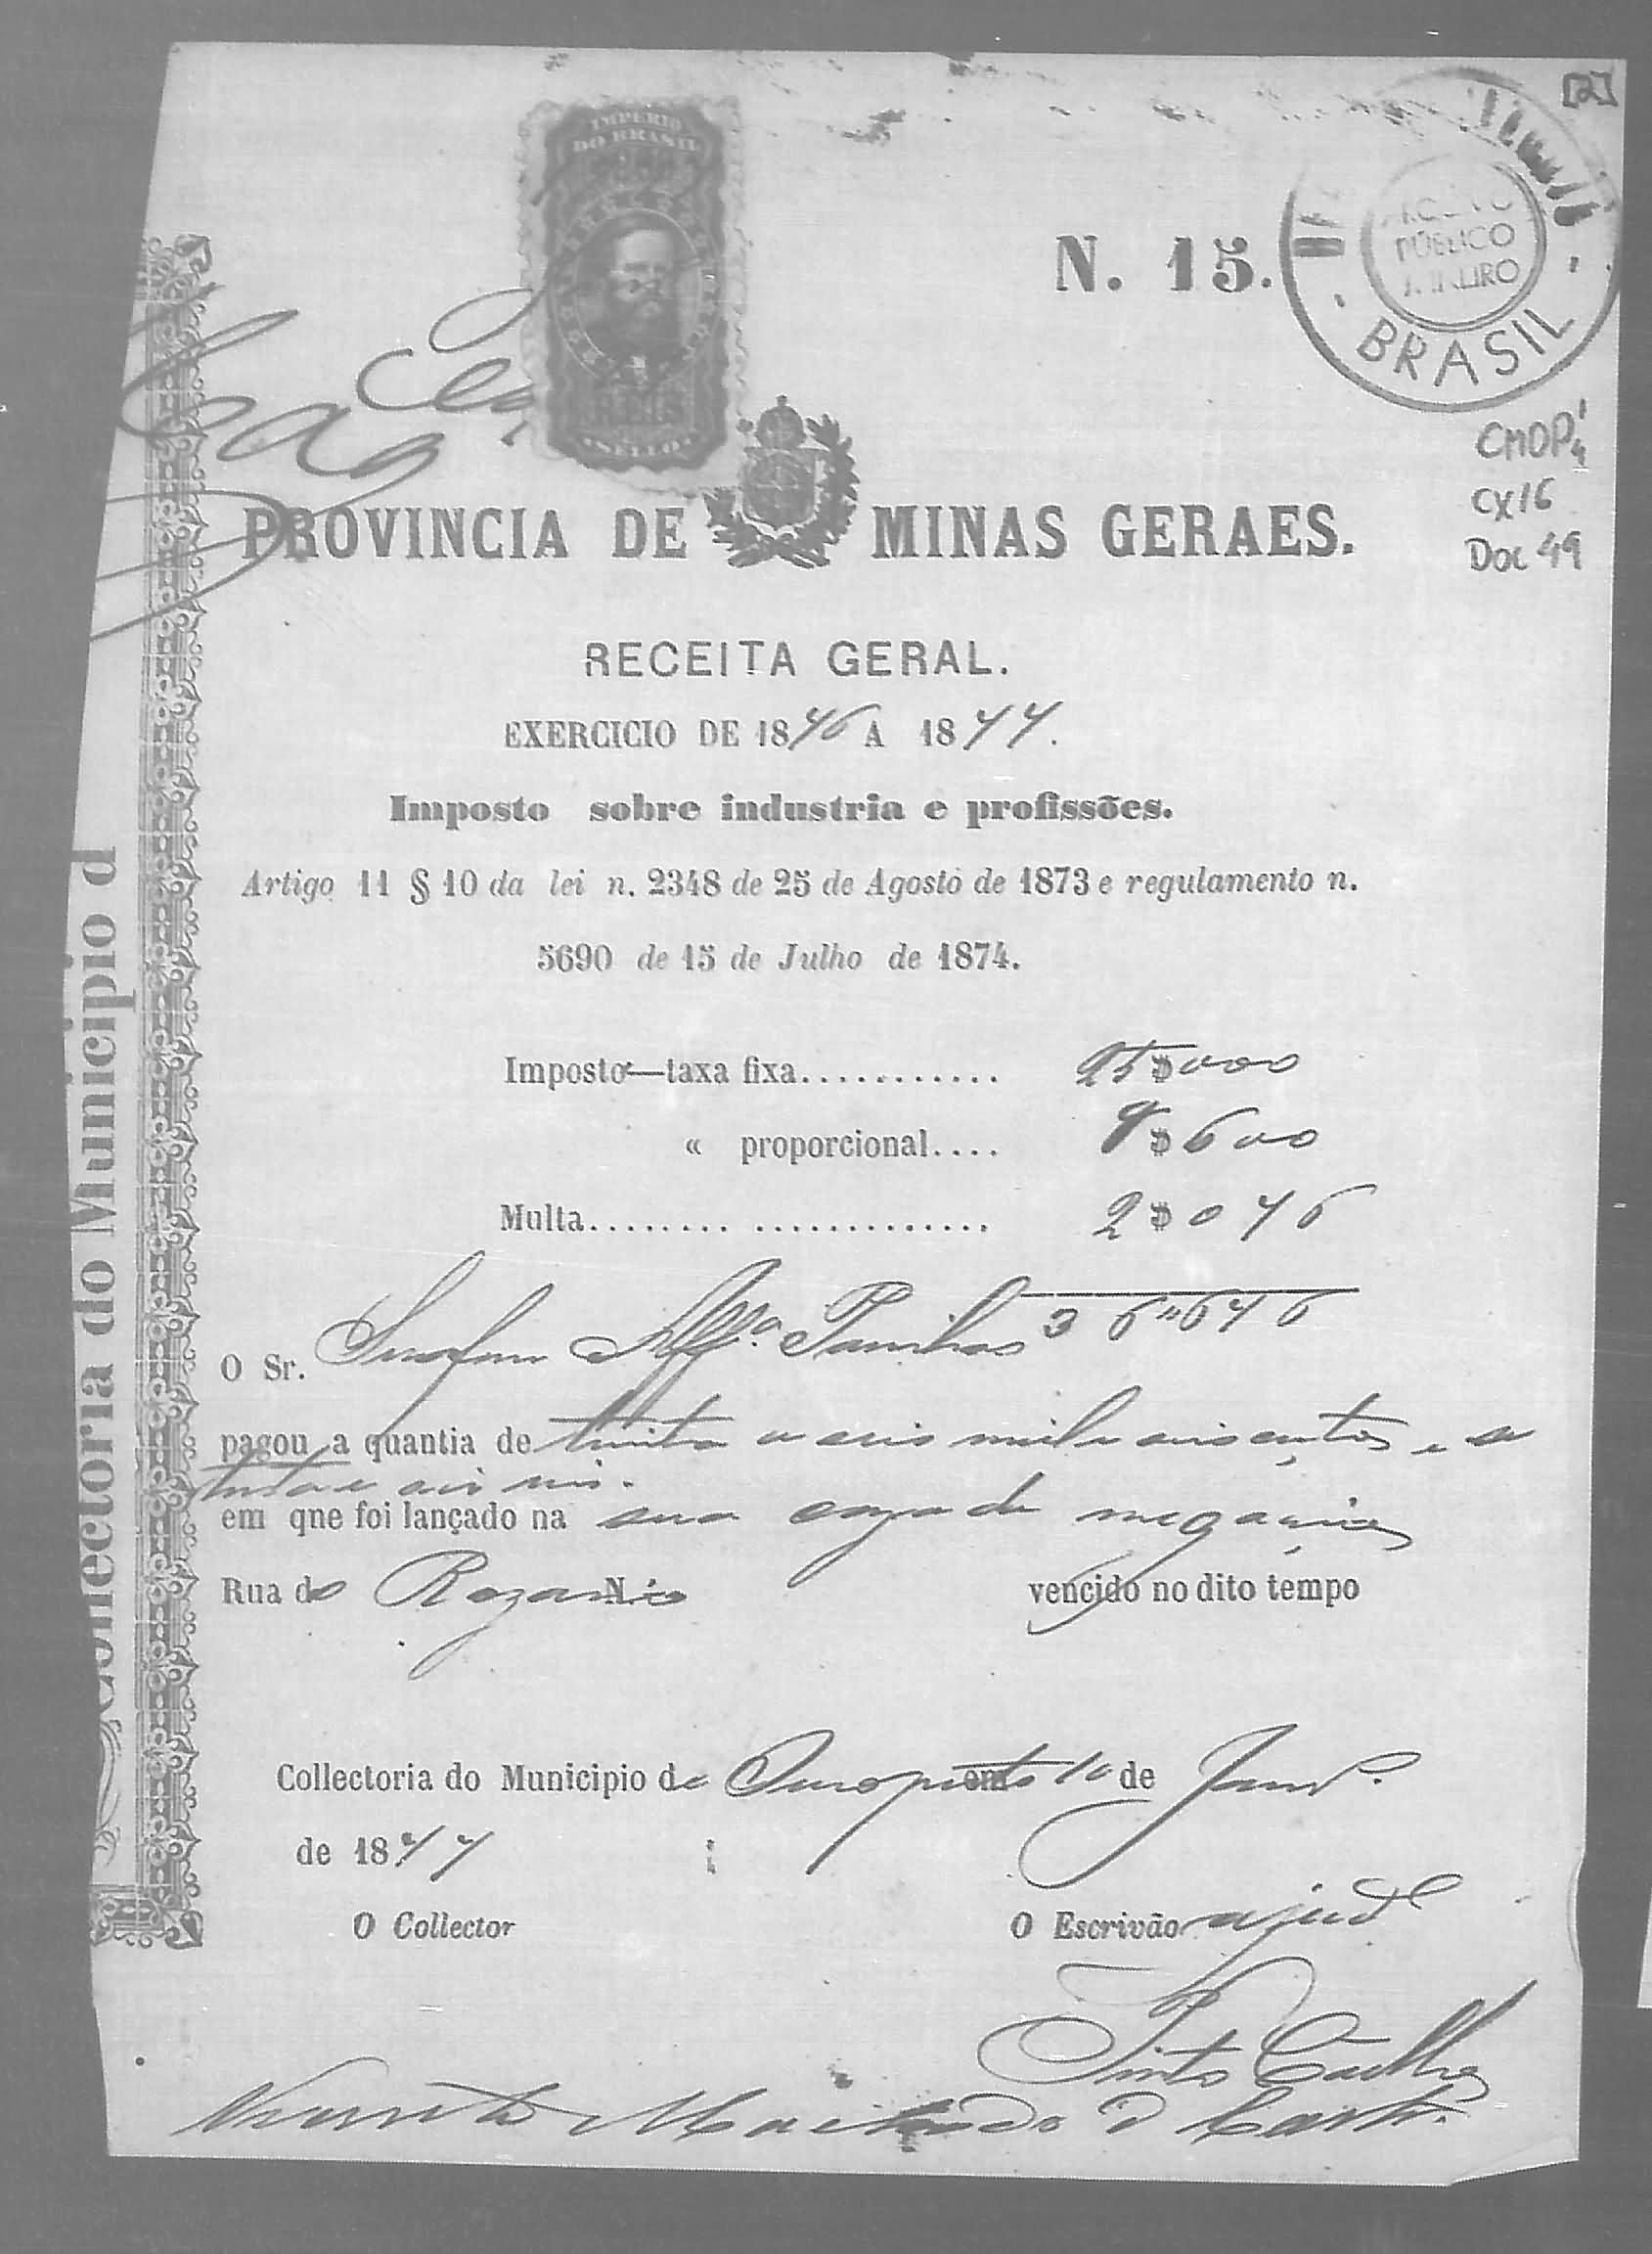 [2]
IMPERIO
DO BRASIL
SELLO
N. 15.
PUBLICO
MINEIRO
BRASIL
CMOP
CX 16
Doc 49
PROVINCIA DE MINAS GERAES.
RECEITA GERAL.
EXERCICIO DE 1876 A 1877.
Imposto sobre industria e profissões.
Artigo 11 § 10 da lei n. 2348 de 25 de Agosto de 1873 e regulamento n.
5690 de 15 de Julho de 1874.
Imposto—taxa fixa........... 25$000
« proporcional.... 9$600
Multa........ ............. 2$076
36"676
O Sr.
pagou a quantia de trinta e seis mil e seis centos e se
tenta e seis reis.
em qne foi lançado na sua caza de negocios
Rua do Rozario N. vencido no dito tempo
Collectoria do Municipio de Ouropreto em 10 de Janr.º
de 1877
O Collector O Escrivão ajud.e
Pinto Coelho
Vicente Machado d Castr.
Collectoria do Municipio d